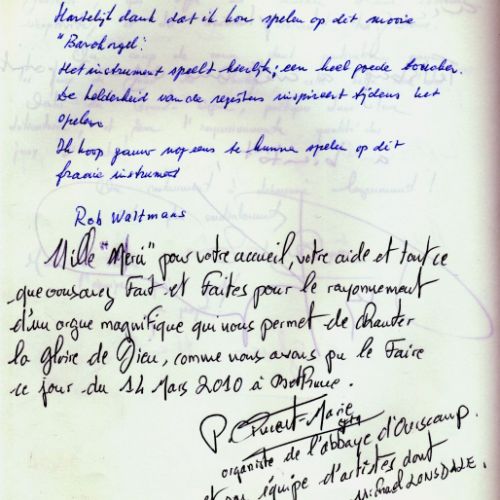 Hartelijk dank dat ik kon spelen op dit mooie
"Barokorgel".
Het instrument speelt heerlijk; een heel goede toucher.
De helderheid van de registers inspireert tijdens het
spelen
Ik hoop gauw nog eens te kunnen spelen op dit
fraaie instrument
Rob Waltmans
Mille "Merci" pour votre accueil, votre aide et tout ce
que vous avez fait et faites pour le rayonnement
d'un orgue magnifique qui nous permet de chanter
la gloire de Dieu, comme nous avons pu le faire
ce jour du 14 Mars 2010 à Béthune.
P. -Marie
organiste de l'abbaye d'Ourscamp.
et son équipe d'artistes dont
Michael LONSDALE.